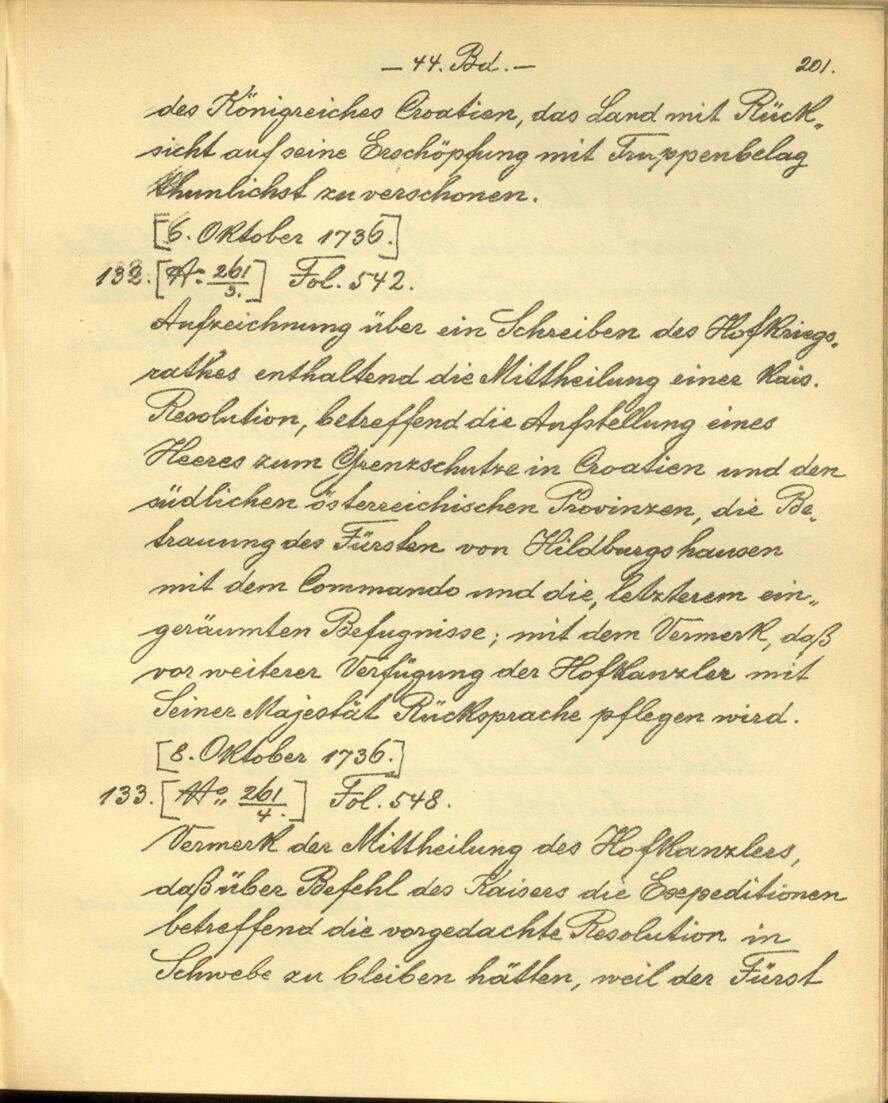 — 44. Bd. — 201.
des Königreiches Croatien, das Land mit Rück„
sicht auf seine Erschöpfung mit Truppenbelag
thunlichst zu verschonen.
[6. Oktober 1736.]
132. [No. 261/3.] Fol. 542.
Aufzeichnung über ein Schreiben des Hofkriegs„
rathes enthaltend die Mittheilung einer kais.
Resolution, betreffend die Aufstellung eines
Heeres zum Grenzschutze in Croatien und den
südlichen österreichischen Provinzen, die Be„
trauung des Fürsten von Hildburgshausen
mit dem Commando und die, letzterem ein„
geräumten Befugnisse; mit dem Vermerk, daß
vor weiterer Verfügung der Hofkanzler mit
Seiner Majestät Rücksprache pflegen wird.
[8. Oktober 1736.]
133. [No. 261/4.] Fol. 548.
Vermerk der Mittheilung des Hofkanzlers,
daß über Befehl des Kaisers die Expeditionen
betreffend die vorgedachte Resolution in
Schwebe zu bleiben hätten, weil der Fürst